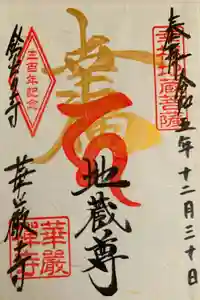 奉拝 令和五年十二月三十日
幸福地蔵菩薩
幸福
地蔵尊
三百年記念
鈴虫寺
華厳寺
華嚴禅寺